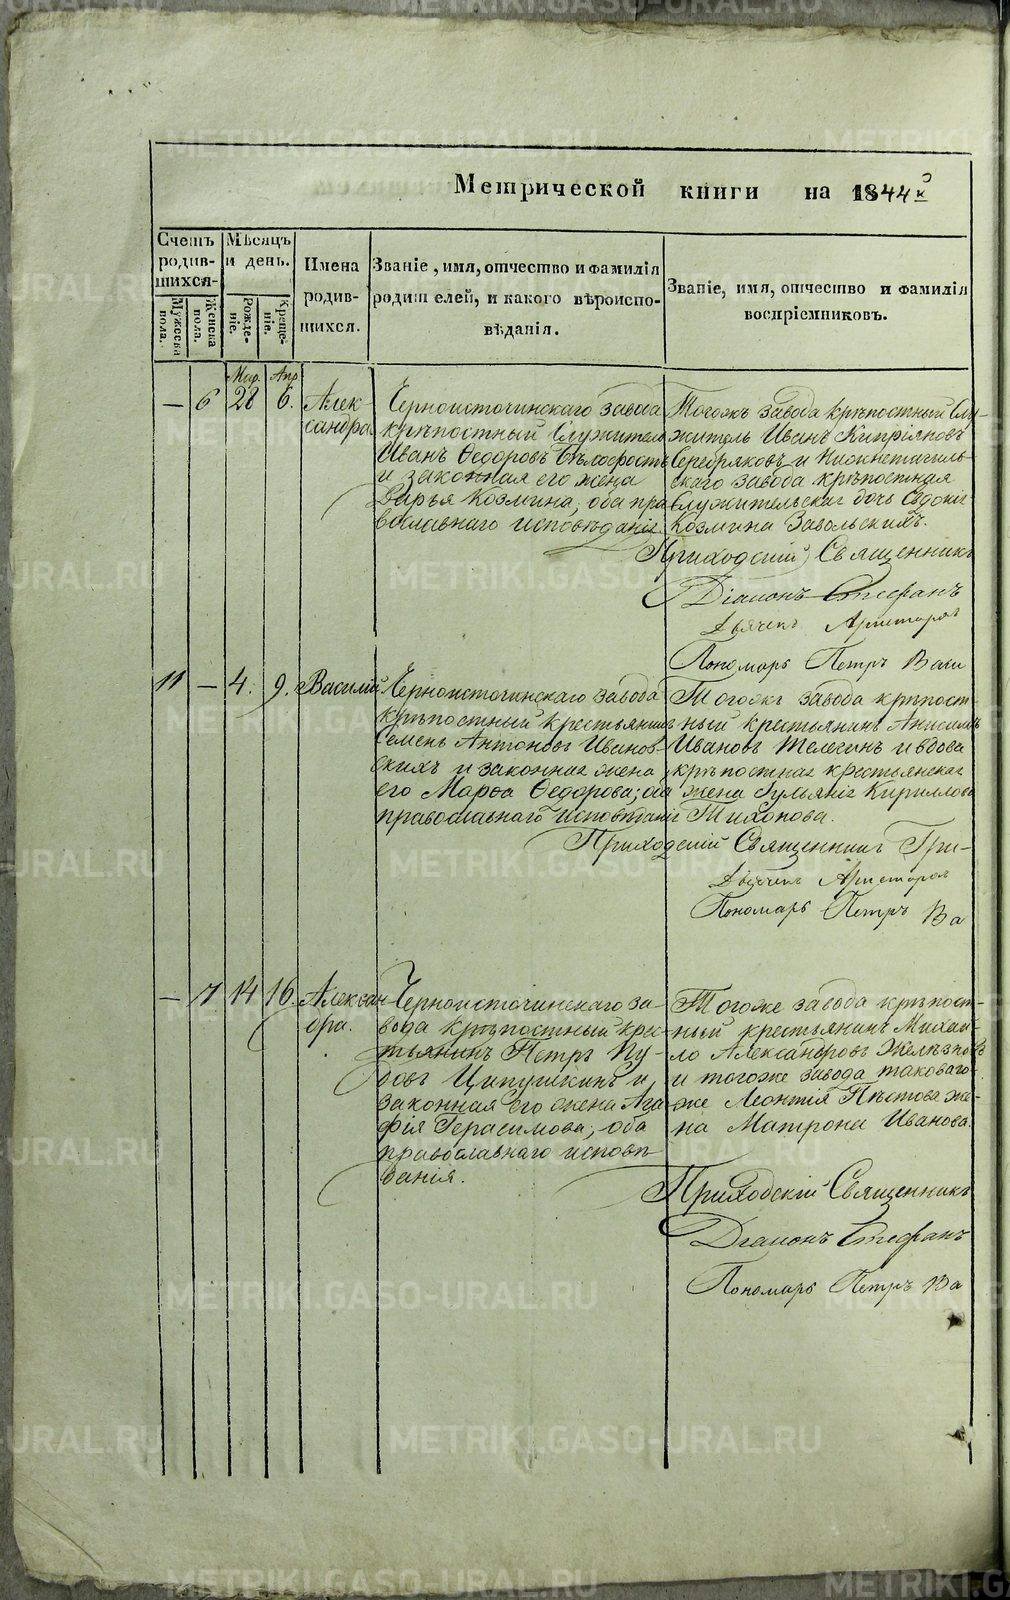 Метрической книги на 1844й
Счетъ родив-шихся.
Мѣсяцъ и день.
Имена родив-шихся.
Званіе, имя, отчество и фамилія родителей, и какого вѣроиспо-вѣданія.
Званіе, имя, отчество и фамилія воспріемниковъ.
Мужеска пола.
Женска пола.
Рожде-ніе.
Креще-ніе.
Мар. Апр
— 6 28 6.
Алек-
сандра
Черноисточинскаго завода
крѣпостный Служитель
Иванъ Ѳедоровъ
и законная его жена
Дарья Козмина, оба пра
вославнаго исповѣданія.
Тогожъ завода крѣпостный Слу-
житель Иванъ Кипріяновъ
Серебряковъ и Нижнетагиль-
скаго завода крѣпостная
Служительская дочь Евдокія
Козмина Завольскихъ.
Приходскій Священникъ
Діаконъ Стефанъ
Дьячекъ Аристархъ
Пономарь Петръ Васи
11 — 4. 9. Василій
Черноисточинскаго завода
крѣпостный крестьянинъ
Семенъ Антоновъ Иванов-
скихъ и законная жена
его Марѳа Ѳедорова; оба
православнаго исповѣданія
Тогожъ завода крѣпост
ный крестьянинъ Анисимъ
Ивановъ Телегинъ и вдова
крѣпостная крестьянская
жена Гульянія Кириллова
Тихонова.
Приходскій Священникъ Гри-
Дьячекъ Аристархъ
Пономарь Петръ Ва
— 7 14 16. Алексан
дра.
Черноисточинскаго за-
вода крѣпостный крес-
тьянинъ Петръ Пу-
довъ Ципушкинъ и
законная его жена Ага
фія Герасимова, оба
православнаго исповѣ
данія.
Тогоже завода крѣпост-
ный крестьянинъ Михай-
ло Александровъ Желѣзновъ
и тогоже завода таковаго
же Леонтія Пѣстова же-
на Матрона Иванова.
Приходскій Священникъ
Діаконъ Стефанъ
Пономарь Петръ Ва
METRIKI.GASO-URAL.RU